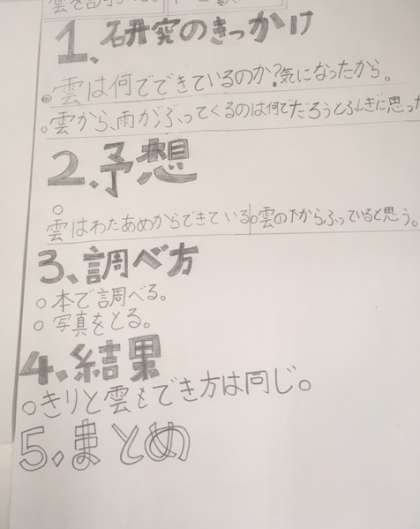 1.研究のきっかけ
雲は何でできているのか?気になったから。
○雲から、雨がふってくるのは何でだろうとふしぎに思った
2.予想
○
雲はわたあめからできている。雲の中からふっていると思う。
3、調べ方
○本で調べる。
○写真をとる。
4、結果
○きりと雲もでき方は同じ。
5.まとめ